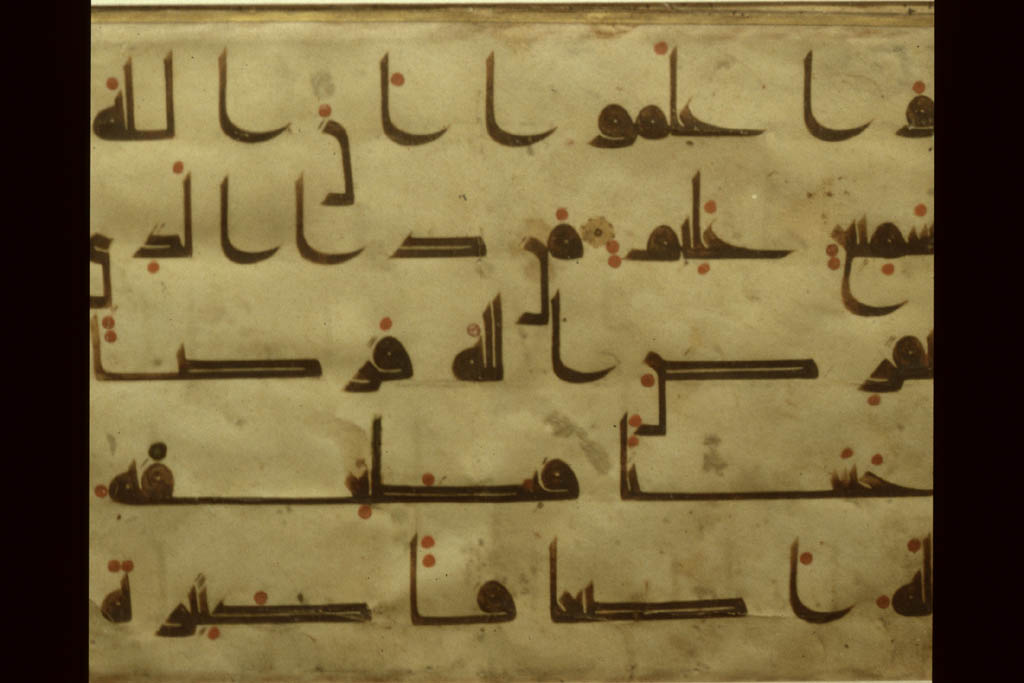 وا علموا ا ن ا لله
سميع عليم من دا ا لدي
يقرض ا لله قرضا
حسنا فيضعفه
له ا ضعا فا كثيرة و